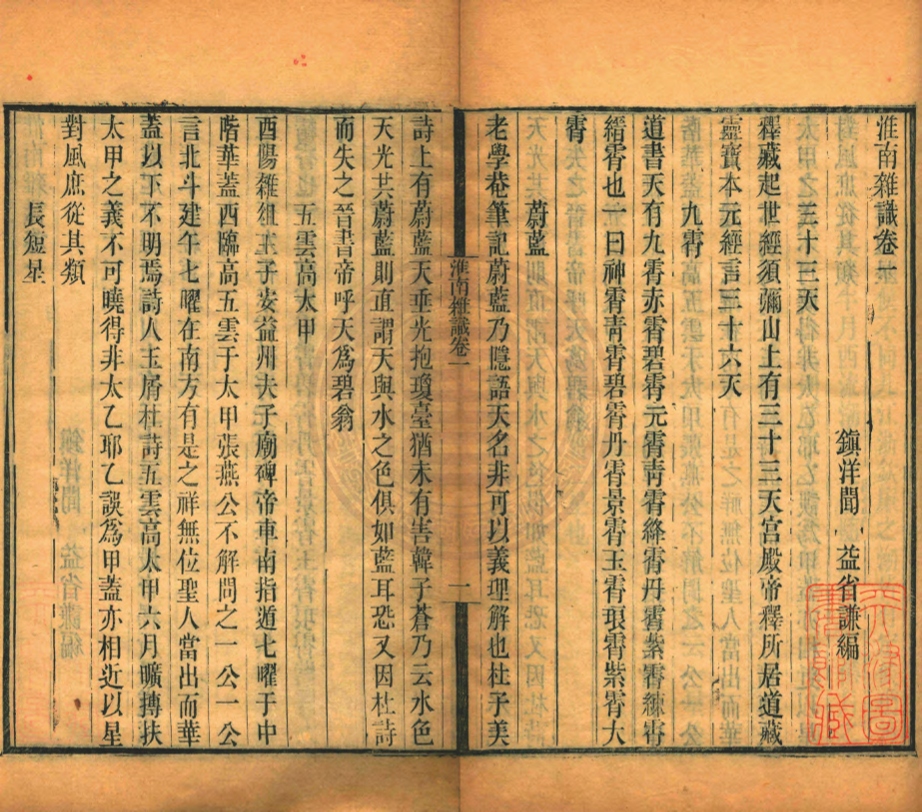 淮南雜識卷一
鎮洋聞 益省謙編
三十三天
釋藏起世經須彌山上有三十三天宮殿帝釋所居道藏
靈寶本元經言三十六天
九霄
道書天有九霄赤霄碧霄元霄靑霄絳霄丹霄紫霄練霄
縉霄也一曰神霄靑霄碧霄丹霄景霄玉霄琅霄紫霄大
霄
蔚藍
老學菴筆記蔚藍乃隱語天名非可以義理解也杜子美
淮南雜識卷一
一
詩上有蔚藍天垂光抱瓊臺猶未有害韓子蒼乃云水色
天光共蔚藍則直謂天與水之色俱如藍耳恐又因杜詩
而失之晉書帝呼天爲碧翁
五雲高太甲
酉陽雜俎王子安益州夫子廟碑帝車南指遁七曜于中
階華蓋西臨高五雲于太甲張燕公不解問之一公一公
言北斗建午七曜在南方有是之祥無位聖人當出而華
蓋以下不明焉詩人玉屑杜詩五雲高太甲六月曠摶扶
太甲之義不可曉得非太乙耶乙誤爲甲蓋亦相近以星
對風庶從其類
長短星